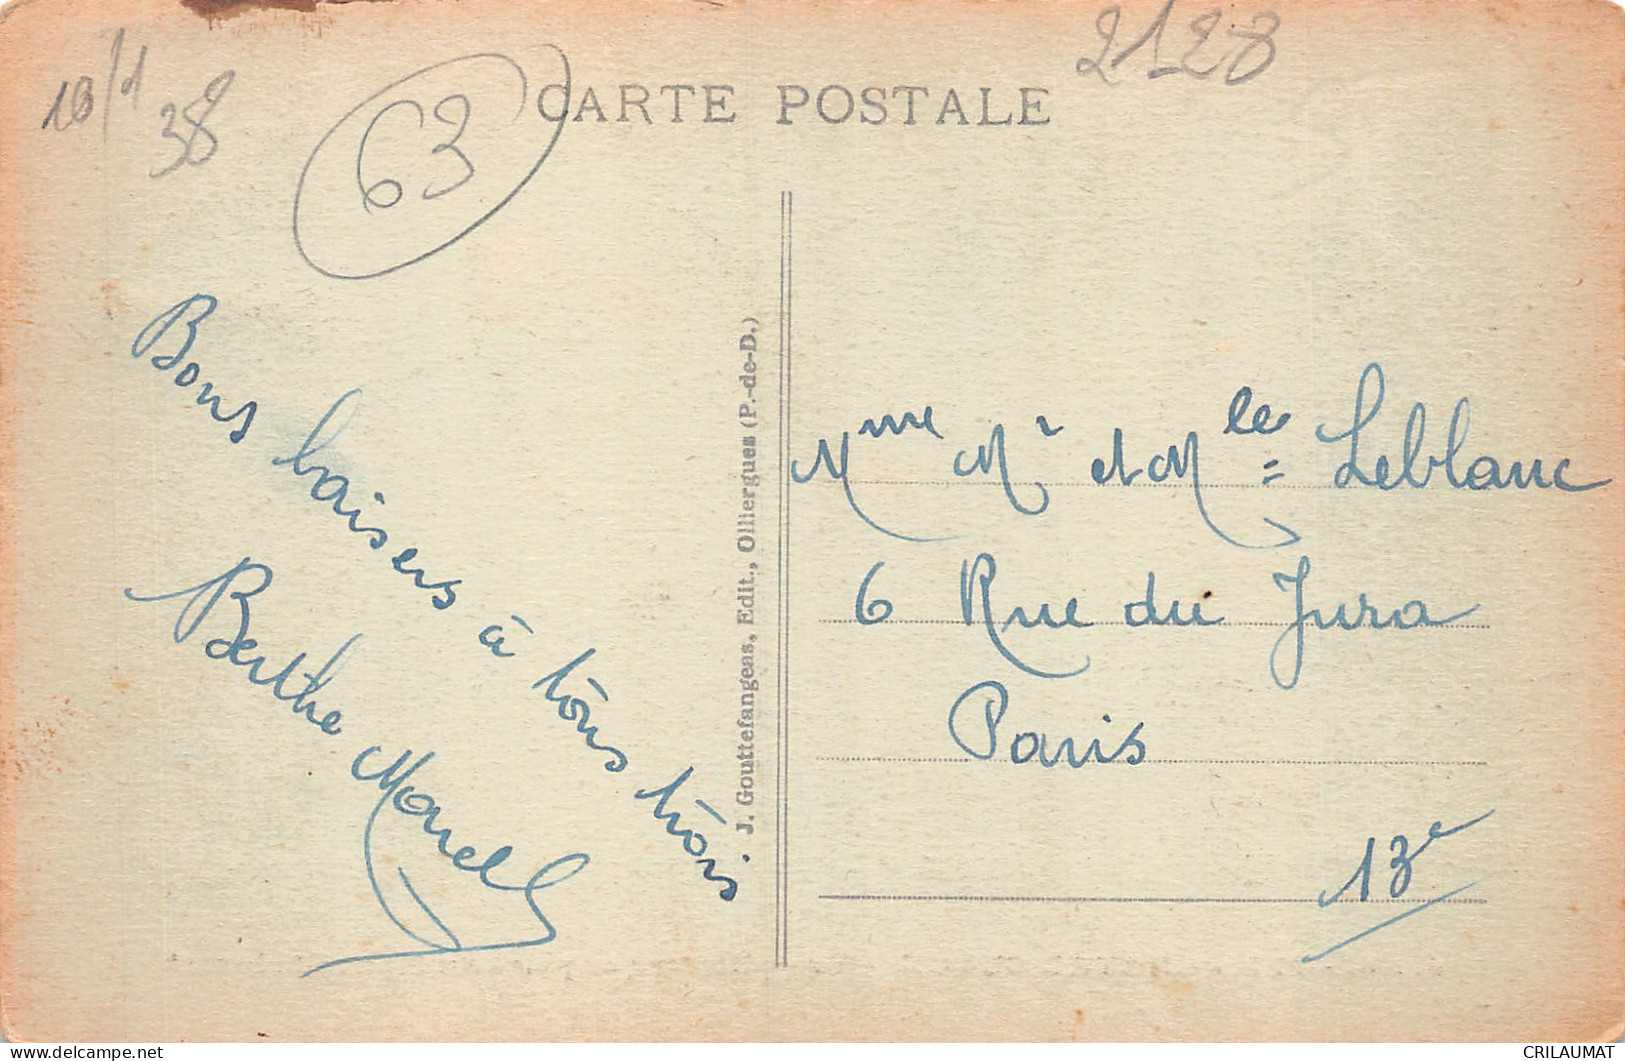 2128
18/1
38
63
CARTE POSTALE
Bons baisers à tous trois
Berthe
J. Gouttefangeas, Edit., Olliergues (P.-de-D.)
Mme Mr et Mlle Leblanc
6 Rue du Jura
Paris
13e
CRILAUMAT